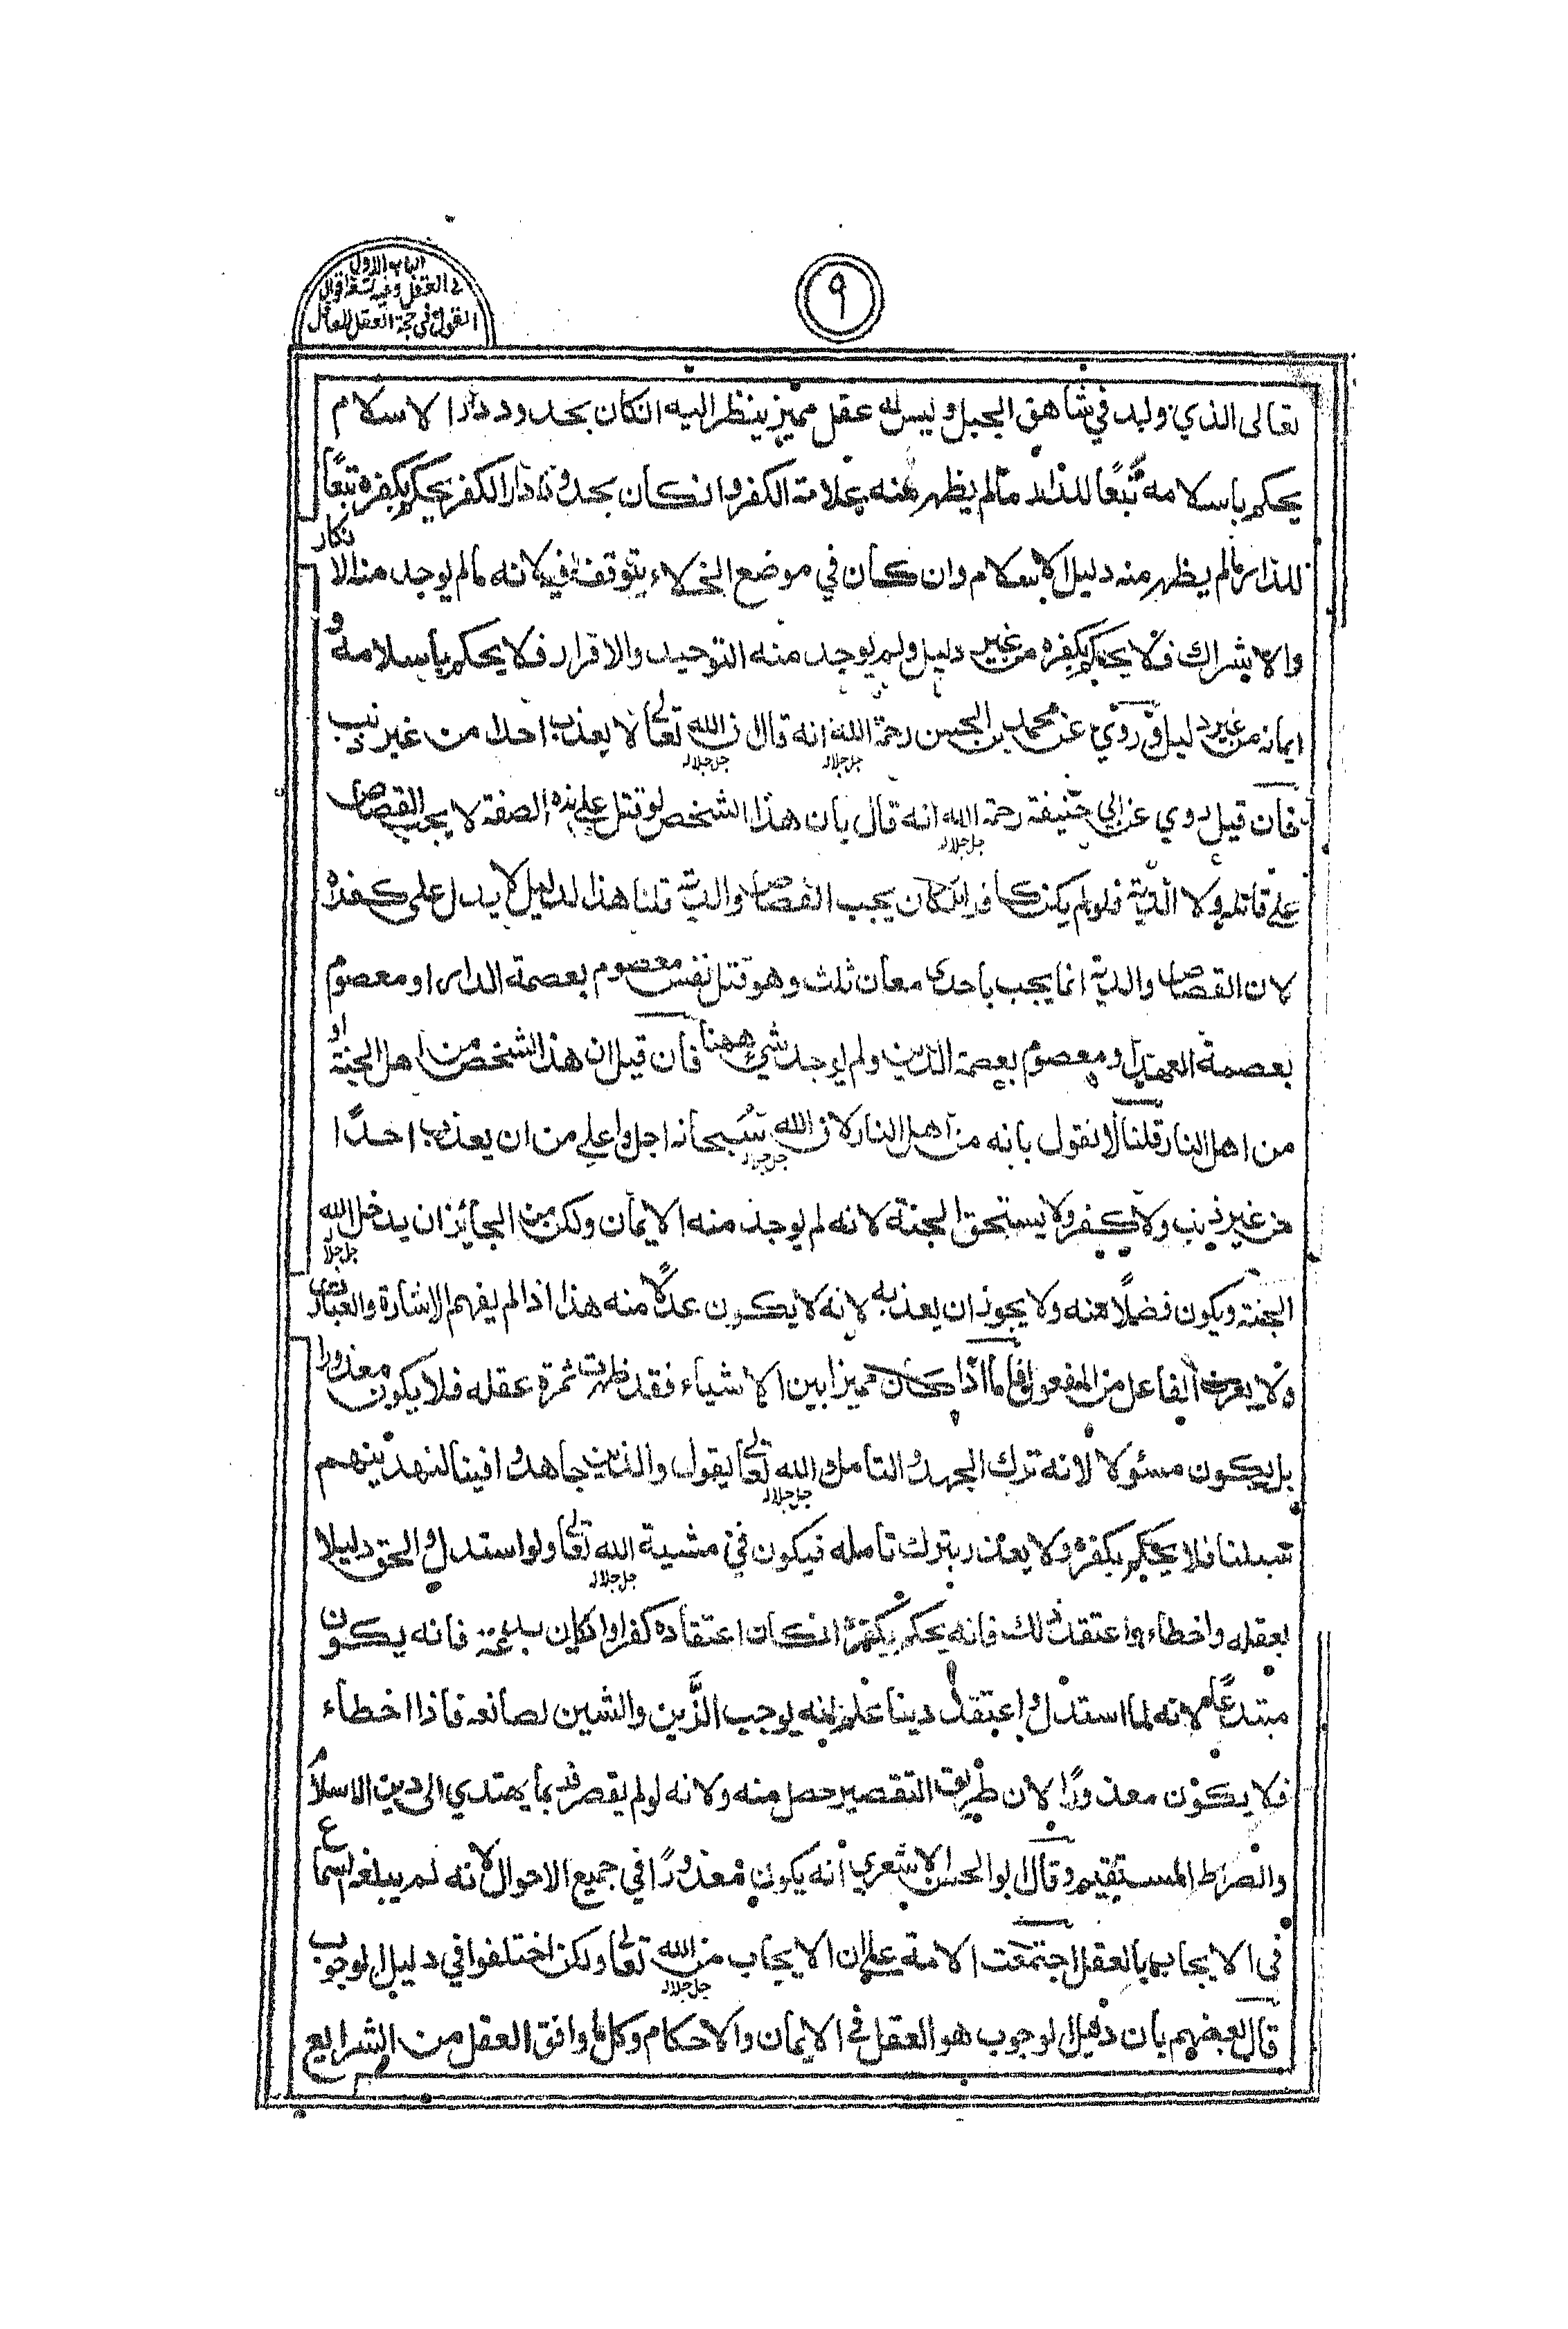 الباب الاول
في العقل وفيه تسعة اقوال
القول في حجة العقل للعاقل
۹
تعالى الذي ولد في شاهق الجبل وليس له عقل مميز ينظر اليه انكان بحدود دار الاسلام
يحكم باسلامه تبعًا للدار مالم يظهر منه علامة الكفر وانكان بحدود دار الكفر يحكم بكفره تبعًا
للدار مالم يظهر منه دليل الاسلام وان كان في موضع الخلاء يتوقف فيه لانه مالم يوجد منه الانكار
والاشراك فلا يحكم بكفره من غير دليل ولم يوجد منه التوحيد والاقرار فلا يحكم باسلامه و
ايمانه من غير دليل وروي عن محمد بن الحسن رحمة الله جل جلاله انه قال ان الله جل جلاله تعالى لا يعذب احدا من غير ذنب
فان قيل روي عن ابي حنيفة رحمة الله جل جلاله انه قال بان هذا الشخص لو قتل على هذه الصفة لا يجب القصاص
على قاتله ولا الدية فلو لم يكن كافرا لكان يجب القصاص والدية قلنا هذا الدليل لا يدل على كفره
لان القصاص والدية انما يجب باحدى معان ثلث وهو قتل نفس معصوم بعصمة الدار او معصوم
بعصمة العهد او معصوم بعصمة الدين ولم يوجد شيء ههنا فان قيل ان هذا الشخص من اهل الجنة او
من اهل النار قلنا لا نقول بانه من اهل النار لان الله جل جلاله سبحانه اجل واعلى من ان يعذب احدًا
من غير ذنب ولا كفر ولا يستحق الجنة لانه لم يوجد منه الايمان ولكن من الجائز ان يدخل الله جل جلاله
الجنة ويكون فضلًا منه ولا يجوز ان يعذبه لانه لا يكون عدلًا منه هذا اذا لم يفهم الاشارة والعبارة
ولا يعرف الفاعل من المفعول فاما اذا كان مميزا بين الاشياء فقد ظهرت ثمرة عقله فلا يكون معذورا
بل يكون مسئولا لانه ترك الجهد والتامل والله جل جلاله تعالى يقول والذين جاهدوا فينا لنهدينهم
سبلنا فلا يحكم بكفره ولا يعذر بترك تامله فيكون في مشية الله جل جلاله تعالى ولو استدل والحق دليلا
بعقله واخطاء واعتقد ذلك فانه يحكم بكفره انكان اعتقاده كفرا وانكان بدعة فانه يكون
مبتدعا لانه لما استدل واعتقد دينا علم انه يوجب الزين والشين لصانعه فاذا اخطاء
فلا يكون معذورًا لان طريق التقصير حصل منه ولانه لو لم يقصر فربما يهتدي الى دين الاسلام
والصراط المستقيم وقال ابو الحسن الاشعري انه يكون معذورًا في جميع الاحوال لانه لم يبلغه السماع
في الايجاب بالعقل اجتمعت الامة على ان الايجاب من الله جل جلاله تعالى ولكن اختلفوا في دليل الوجوب
قال بعضهم بان دليل الوجوب هو العقل في الايمان والاحكام وكل ما وافق العقل من الشرايع